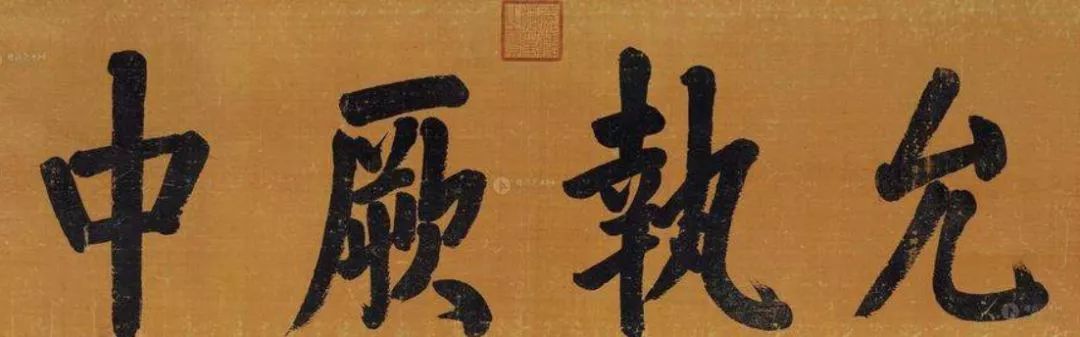 允執厥中